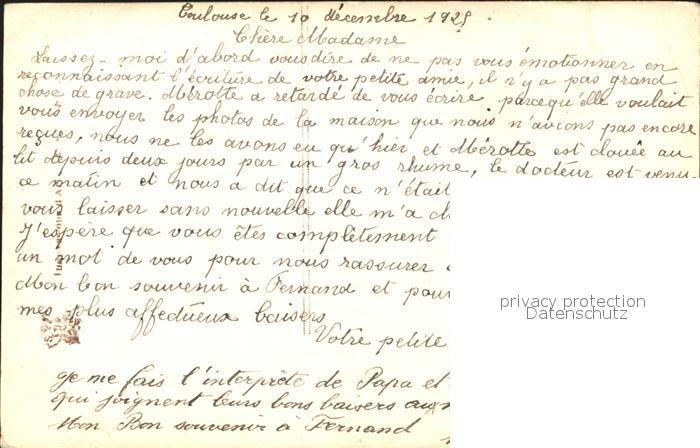 Toulouse le 10 décembre 1925.
Chère Madame
Laissez-moi d'abord vous dire de ne pas vous émotionner en
reconnaissant l'écriture de votre petite amie, il n'y a pas grand
chose de grave. Mérotte a retardé de vous écrire parcequ'elle voulait
vous envoyer les photos de la maison que nous n'avions pas encore
reçues, nous ne les avons eu qu'hier et Mérotte est clouée au
lit depuis deux jours par un gros rhume, le docteur est venu
ce matin et nous a dit que ce n'était
vous laisser sans nouvelle elle m'a
J'espère que vous êtes complètement
un mot de vous pour nous rassurer
Mon bon souvenir à Fernand et pour
mes plus affectueux baisers
Votre petite
Je me fais l'interprète de Papa et
qui joignent leurs bons baisers aux
Mon Bon souvenir à Fernand
privacy protection
Datenschutz